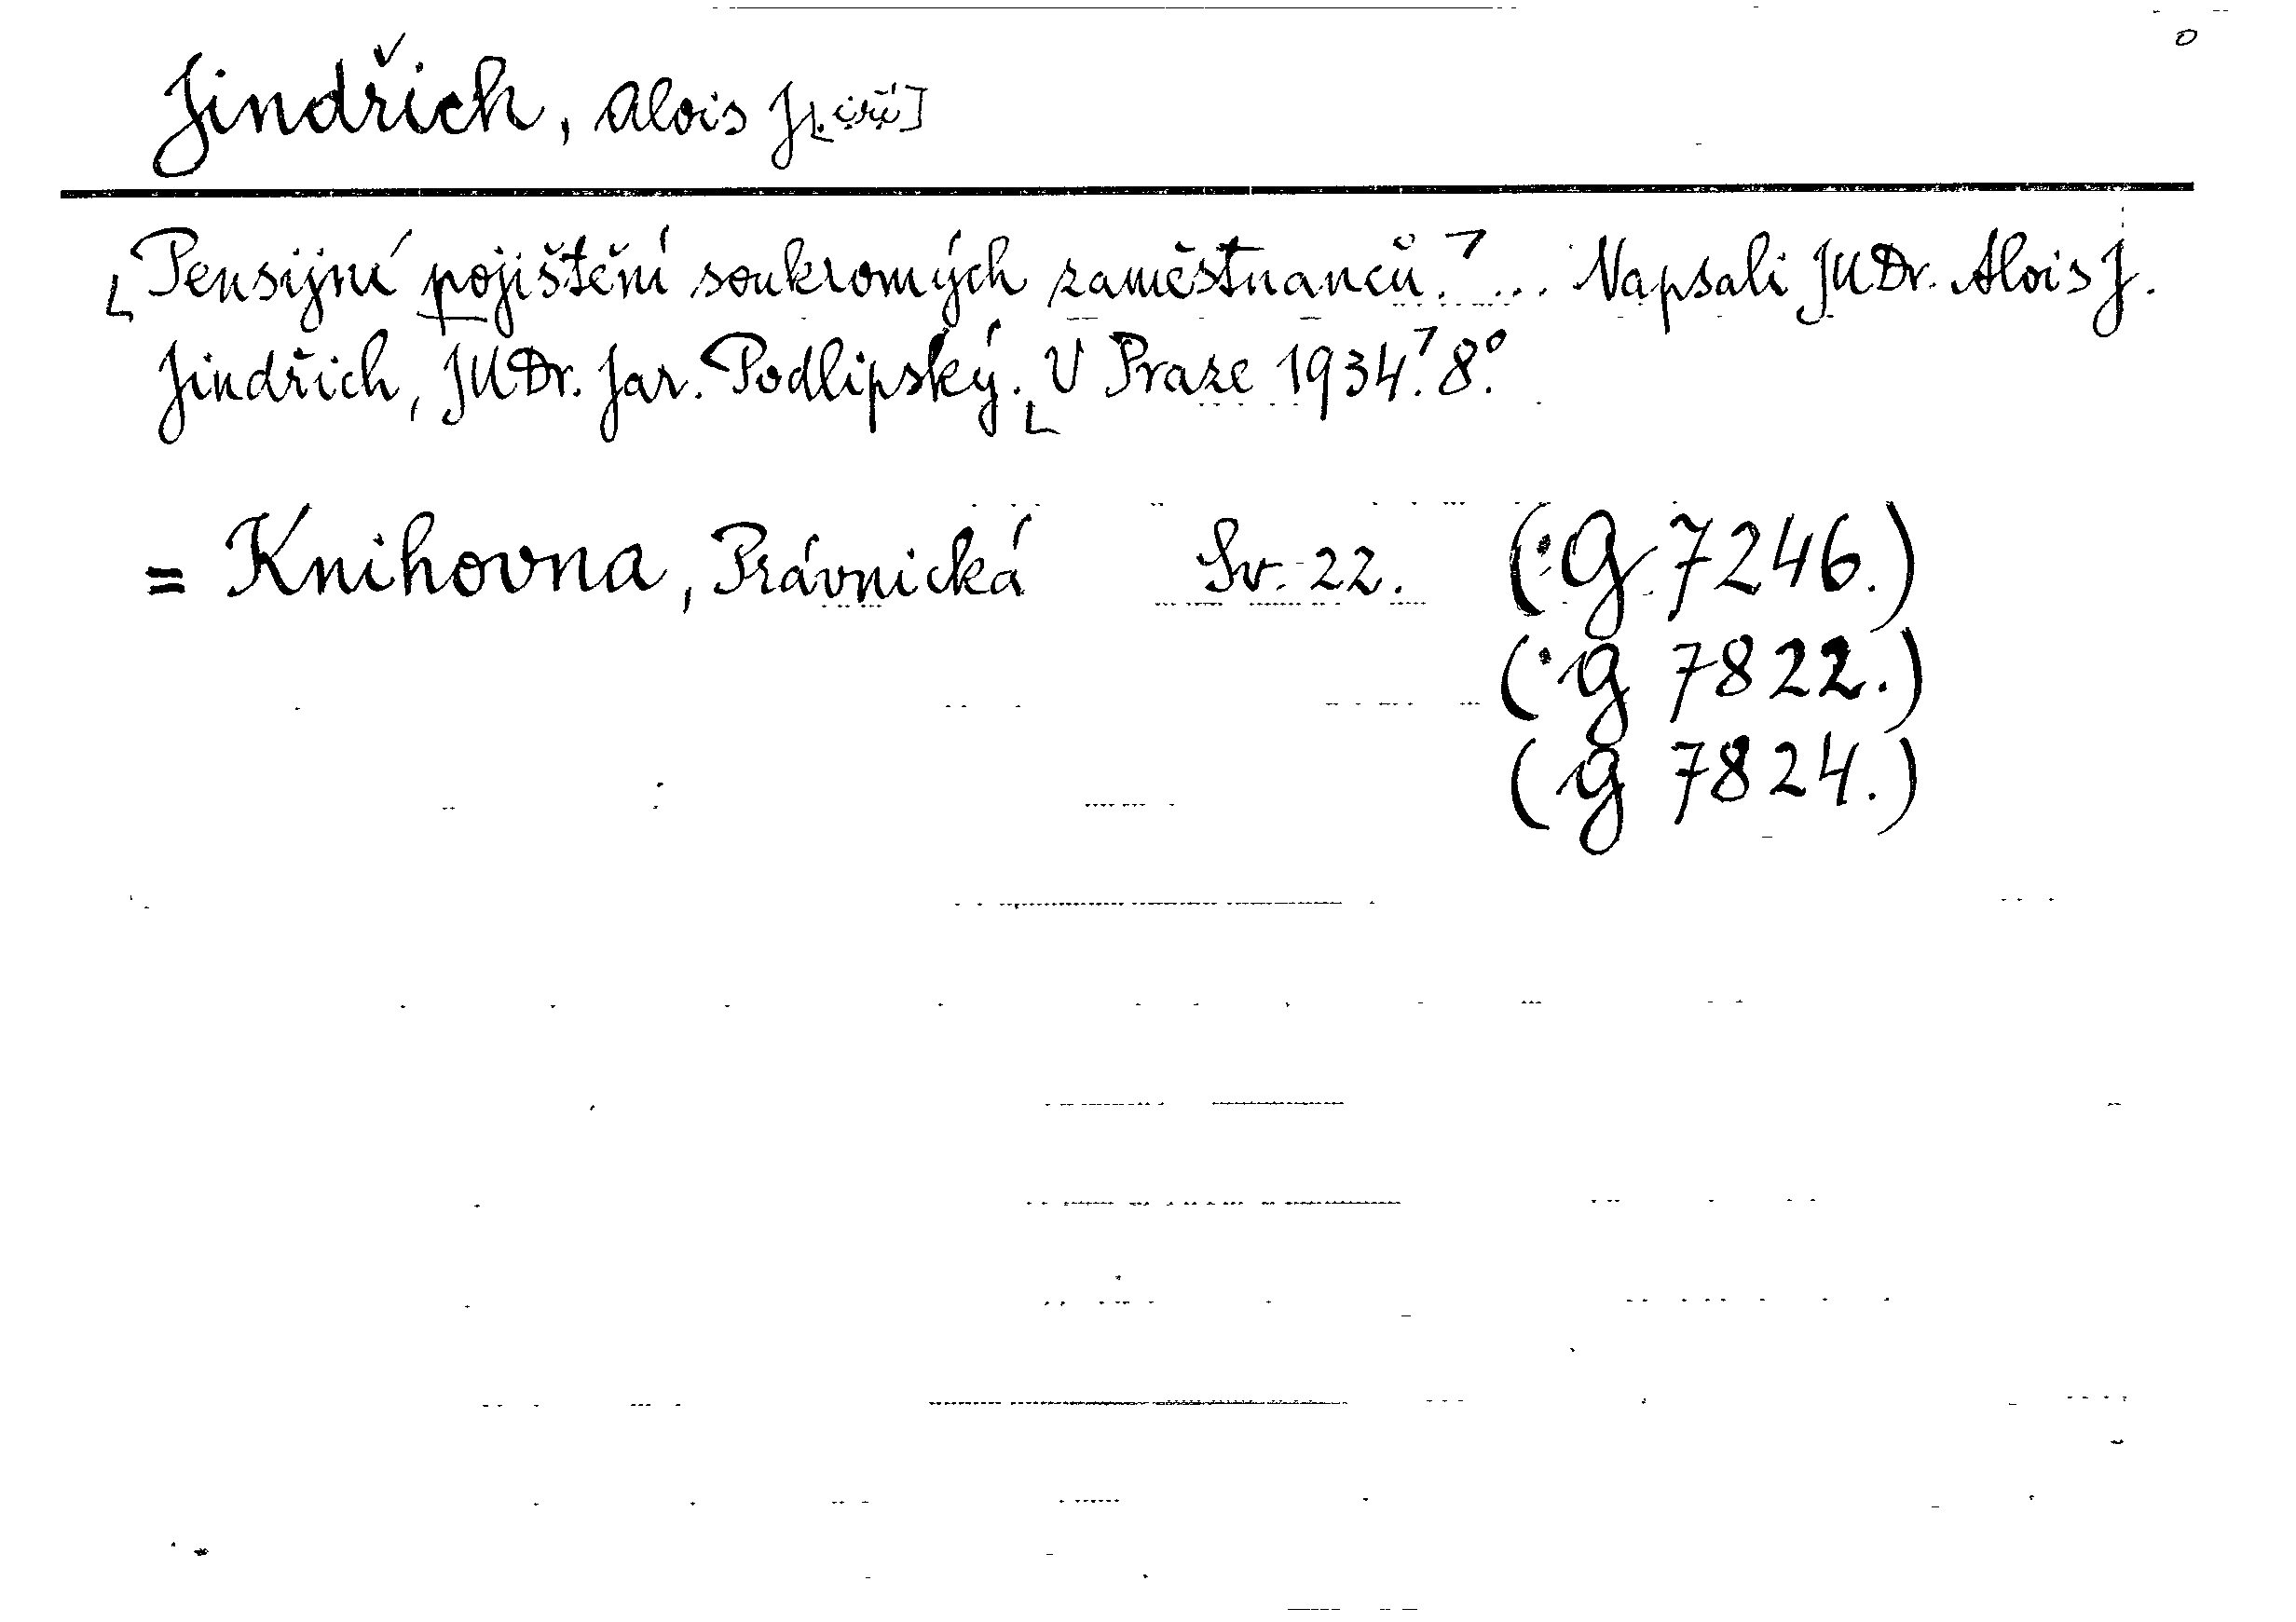 Jindřich, Alois J[iří]
[Pensijní pojištění soukromých zaměstnanců.] ... Napsali JUDr. Alois J.
Jindřich, JUDr. Jar. Podlipský. [V Praze 1934.] 8.°
= Knihovna, Právnická Sv. 22. (G 7246.)
(G 7822.)
(G 7824.)